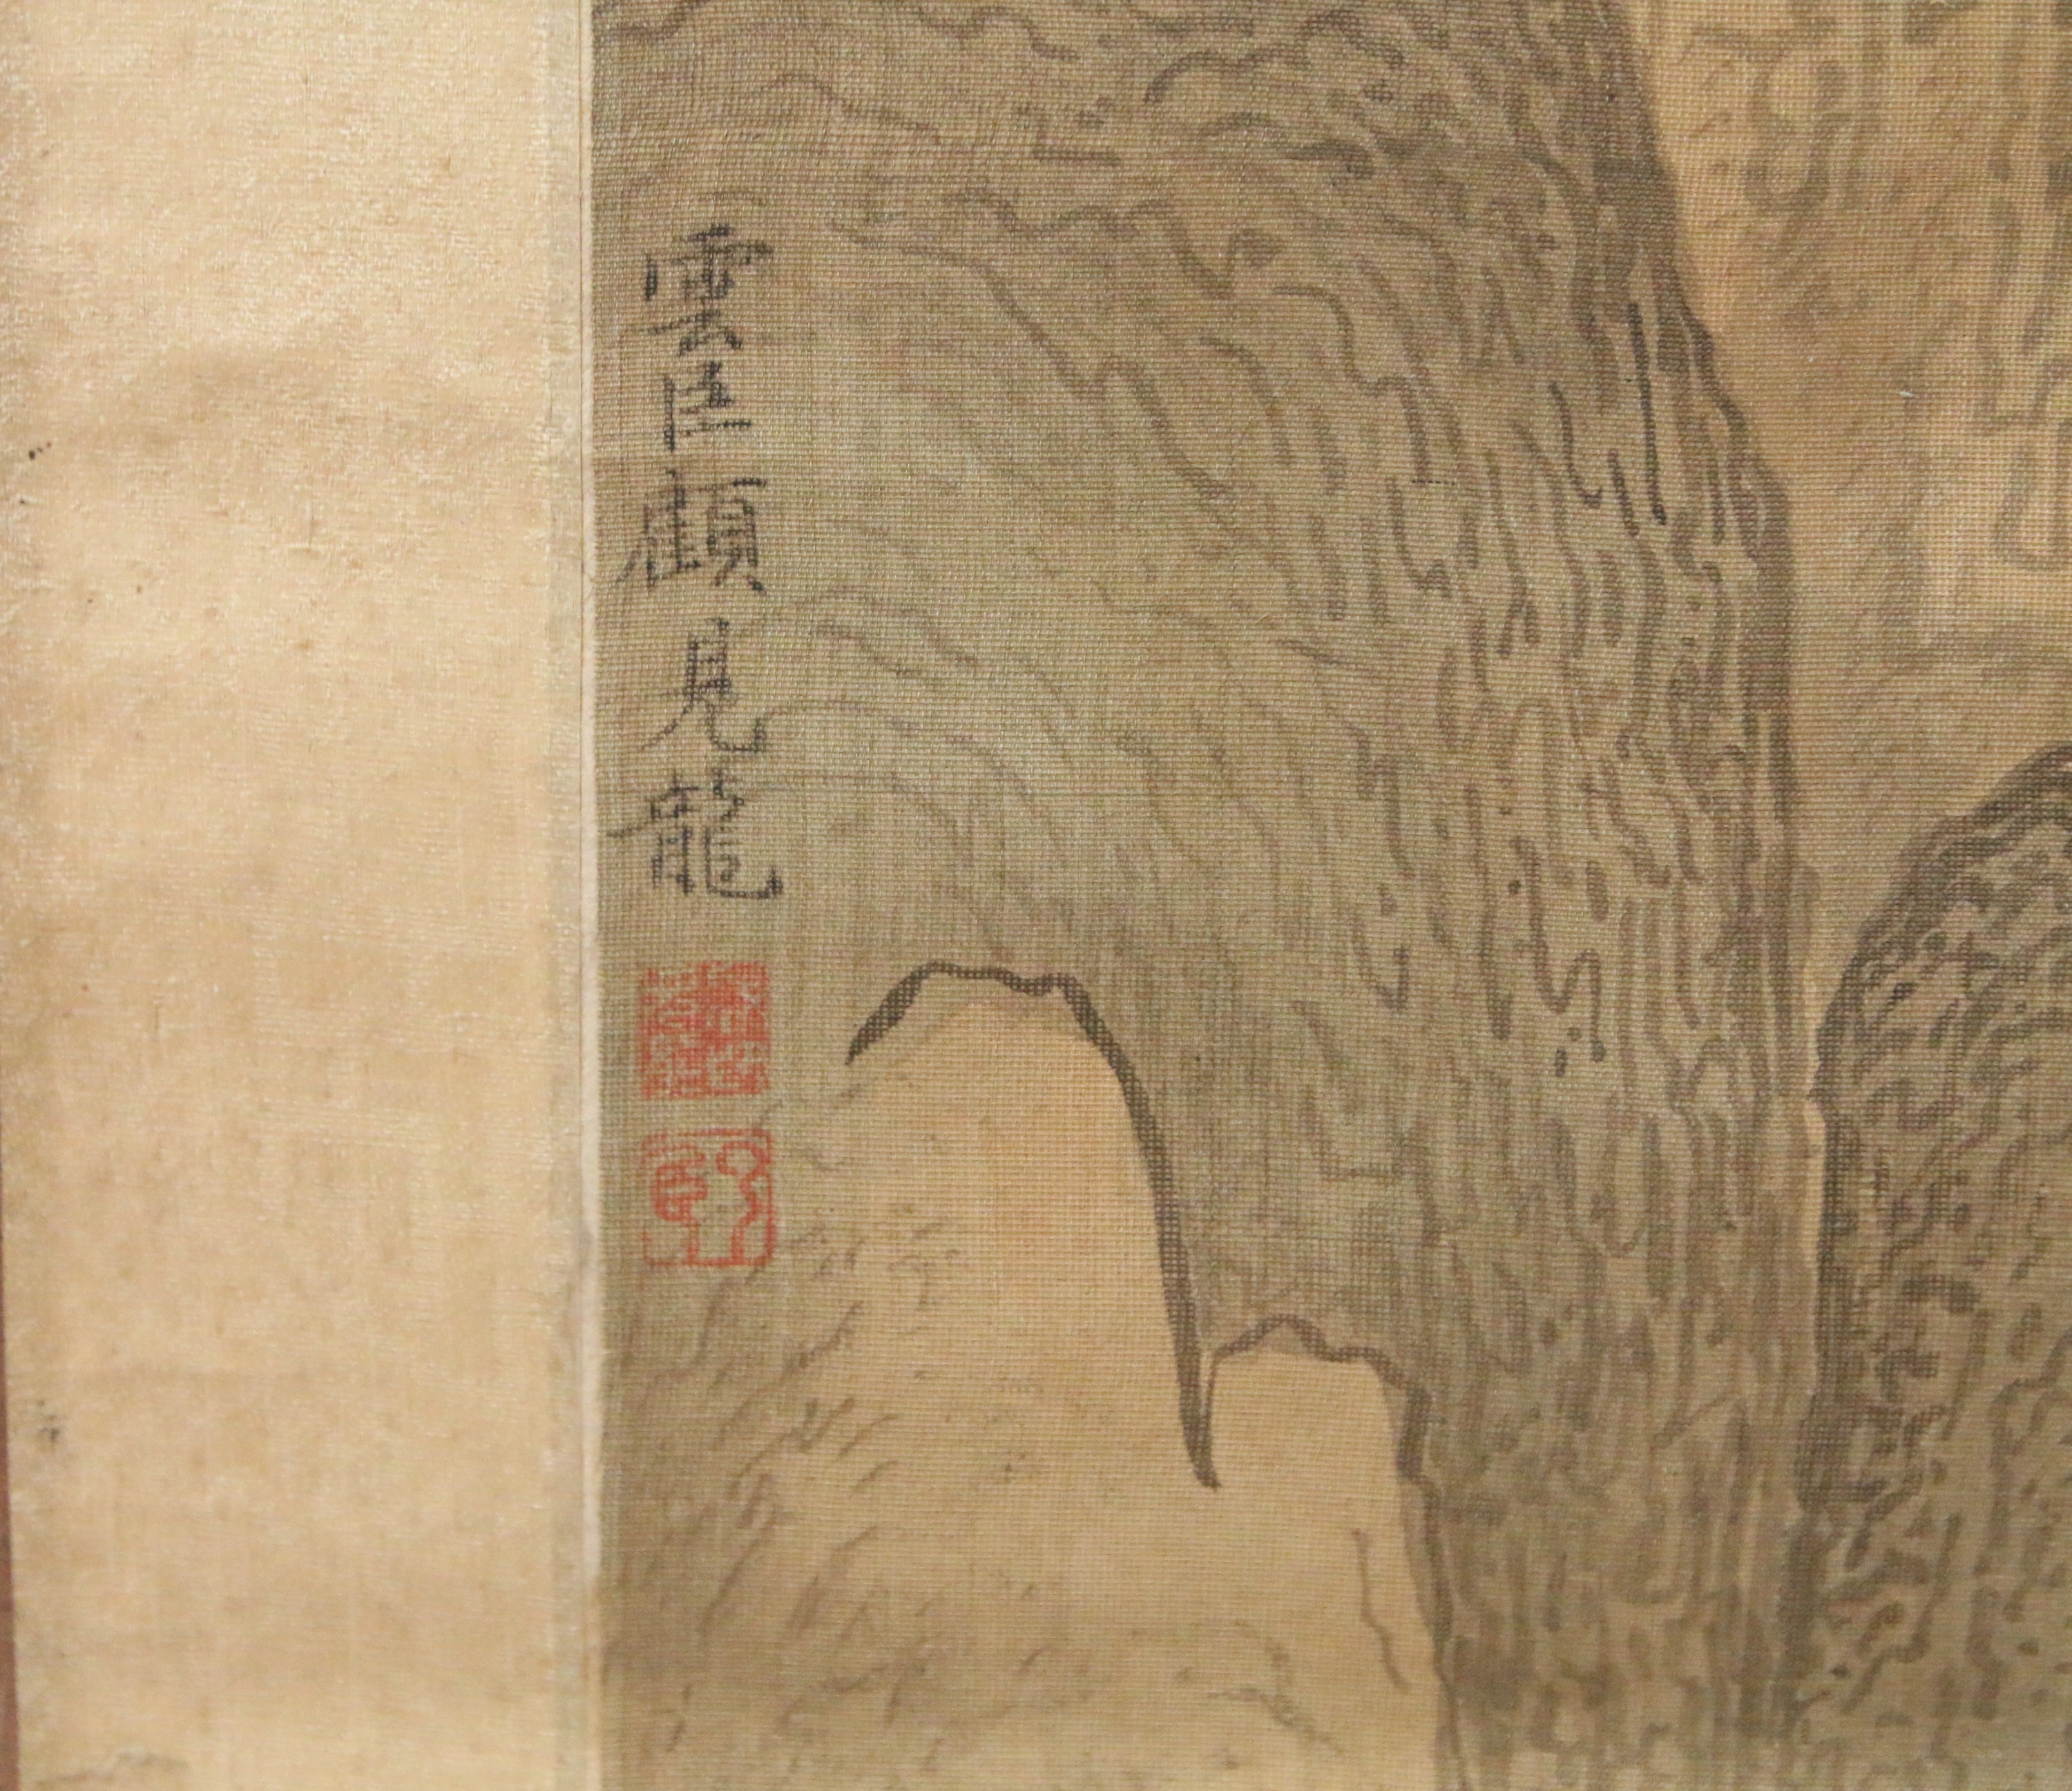 雲臣顧見龍